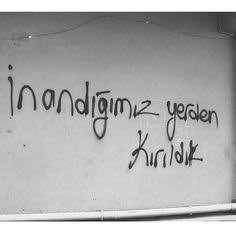 İnandığımız yerden
Kırıldık